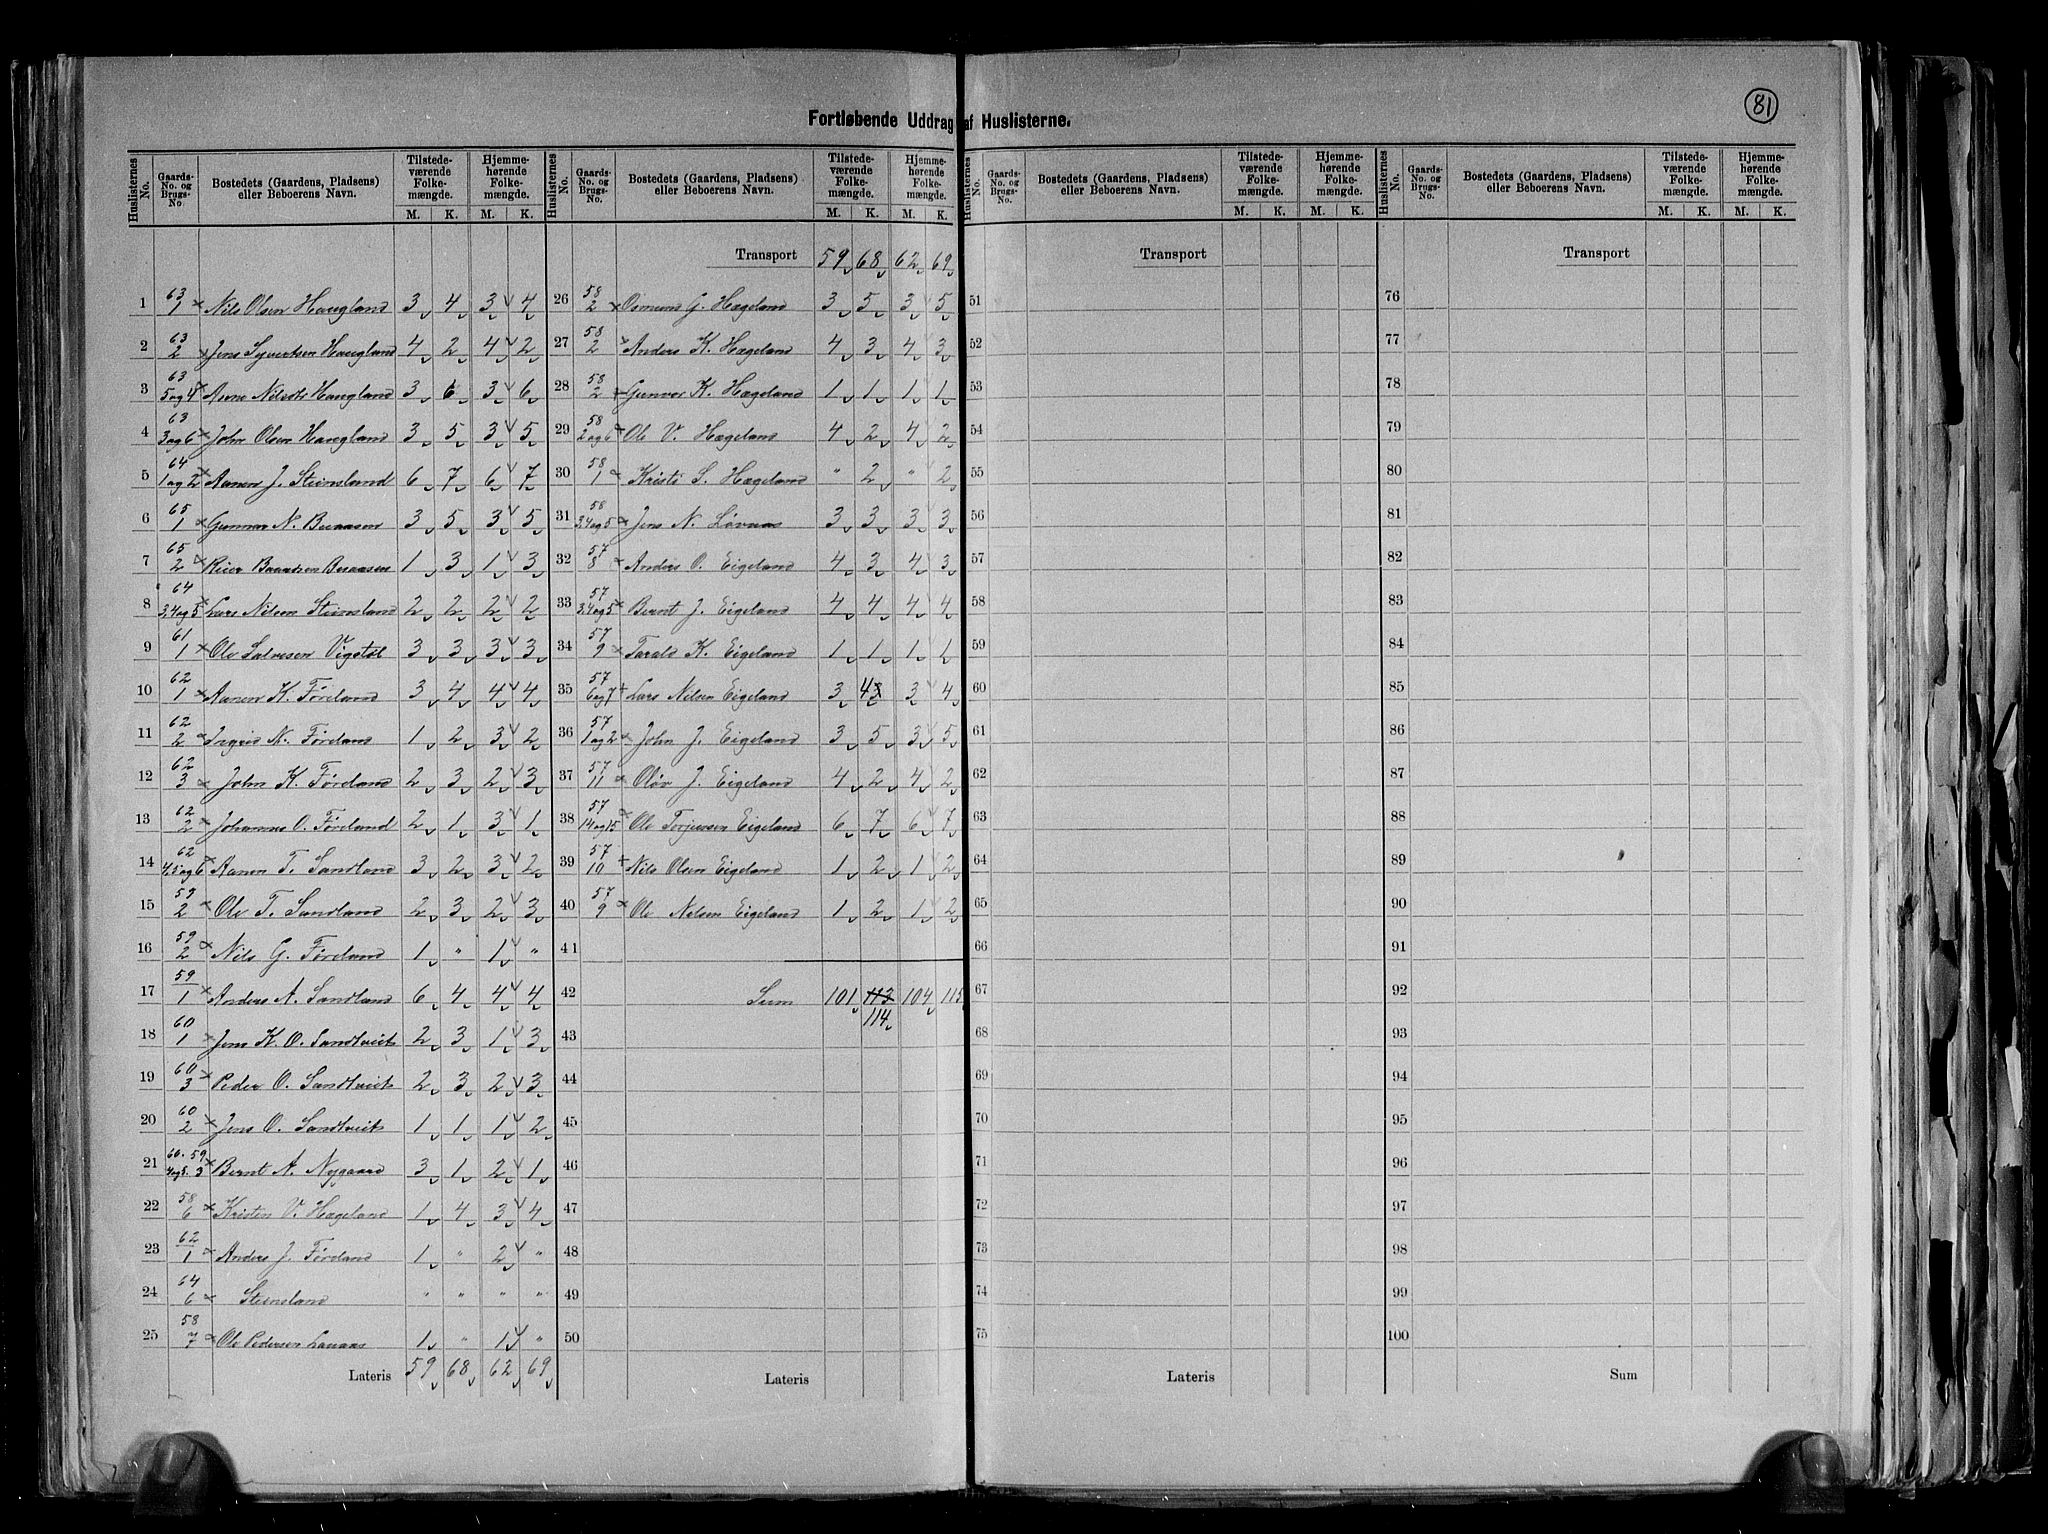 81
Fortløbende Uddrag af Huslisterne.
Huslisternes No. Gaards-No. og Brugs-No Bostedets (Gaardens, Pladsens) eller Beboerens Navn. Tilstedeværende Folkemængde. M. K. Hjemmehørende Folkemængde. M. K.
1 63 1 × Nils Olsen Haugland 3 4 3 4
2 63 2 × Jens Syvertsen Haugland 4 2 4 2
3 63 5 og 4 × Anne Nilsdtr Haugland 3 6 3 6
4 63 3 og 6 × John Olsen Haugland 3 5 3 5
5 64 1 og 2 × Aanen J. Steinsland 6 7 6 7
6 65 1 × Gunnar N. 3 5 3 5
7 65 2 × 1 3 1 3
8 64 3,4 og 5 × Lars Nilsen Steinsland 2 2 2 2
9 61 1 × Ole Salvesen Vigstøl 3 3 3 3
10 62 1 × Aanen K. Føreland 3 4 4 4
11 62 2 × Ingrid N. Føreland 1 2 3 2
12 62 3 × John K. Føreland 2 3 2 3
13 62 2 × Johannes O. Føreland 2 1 3 1
14 62 4,5 og 6 × Aanen T. Sandland 3 2 3 2
15 59 2 × Ole T. Sandland 2 3 2 3
16 59 2 × Nils G. Føreland 1 " 1 "
17 59 1 × Anders A. Sandland 6 4 4 4
18 60 1 × Jens K. O. Sandtveit 2 3 1 3
19 60 3 × Peder O. Sandtveit 2 3 2 3
20 60 2 × Jens O. Sandtveit 1 1 1 2
21 60. 59 4 og 5. 3 × Bernt A. Nygaard 3 1 2 1
22 58 6 × Kristen V. Hægeland 1 4 3 4
23 62 1 × Anders J. Føreland 1 " 2 "
24 64 6 × Steinsland " " " "
25 58 7 × Ole Pedersen 1 " 1 "
Lateris 59 68 62 69
Huslisternes No. Gaards-No. og Brugs-No. Bostedets (Gaardens, Pladsens) eller Beboerens Navn. Tilstedeværende Folkemængde. M. K. Hjemmehørende Folkemængde. M. K.
Transport 59 68 62 69
26 58 2 × Osmund G. Hægeland 3 5 3 5
27 58 2 × Anders K. Hægeland 4 3 4 3
28 58 2 × Gunvor K. Hægeland 1 1 1 1
29 58 2 og 6 × Ole V. Hægeland 4 2 4 2
30 58 1 × Kristi S. Hægeland " 2 " 2
31 58 3,4 og 5 × Jens N. Løvaas 3 3 3 3
32 57 8 × Anders O. Eigeland 4 3 4 3
33 57 3,4 og 5 × Bernt J. Eigeland 4 4 4 4
34 57 9 × Tarald K. Eigeland 1 1 1 1
35 57 6 og 7 × Lars Nilsen Eigeland 3 4 3 3 4
36 57 1 og 2 × John J. Eigeland 3 5 3 5
37 57 11 × Olav J. Eigeland 4 2 4 2
38 57 14 og 15 × Ole Torjussen Eigeland 6 7 6 7
39 57 10 × Nils Olsen Eigeland 1 2 1 2
40 57 9 × Ole Nilsen Eigeland 1 2 1 2
41
42 Sum 101 113 104 115
114
43
44
45
46
47
48
49
50
Lateris
Huslisternes No. Gaards-No. og Brugs-No. Bostedets (Gaardens, Pladsens) eller Beboerens Navn. Tilstedeværende Folkemængde. M. K. Hjemmehørende Folkemængde. M. K.
Transport
51
52
53
54
55
56
57
58
59
60
61
62
63
64
65
66
67
68
69
70
71
72
73
74
75
Lateris
Huslisternes No. Gaards-No. og Brugs-No. Bostedets (Gaardens, Pladsens) eller Beboerens Navn. Tilstedeværende Folkemængde. M. K. Hjemmehørende Folkemængde. M. K.
Transport
76
77
78
79
80
81
82
83
84
85
86
87
88
89
90
91
92
93
94
95
96
97
98
99
100
Sum